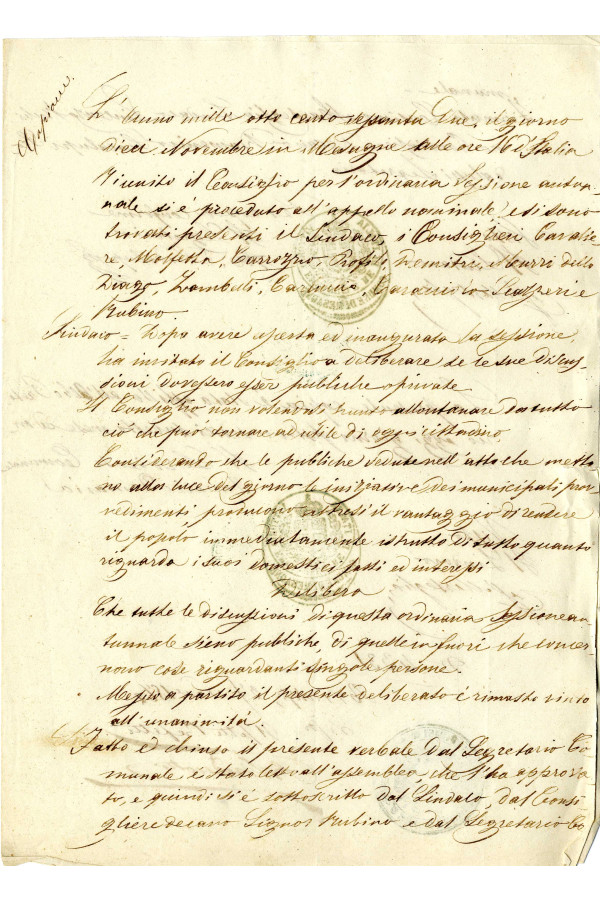 L'Anno mille otto cento sessanta due, il giorno
dieci Novembre in Mesagne alle ore 16 d'Italia
Riunito il Consiglio per l'ordinaria Sessione autun-
nale si è proceduto all'appello nominale, e si sono
trovati presenti il Sindaco, i Consiglieri Cavalie-
re Molfetta, Carrozzo, Profilo, Demitri,
Zambelli, e
Rubino.
Sindaco = Dopo avere aperta ed inaugurata la sessione,
ha invitato il Consiglio a deliberare se le sue discus-
sioni dovessero esser publiche o private
Il Consiglio non volendo allontanare da tutto
ciò che può tornare ad utile di ogni cittadino
Considerando che le publiche sedute nell'atto che metto-
no alla luce del giorno le iniziative dei municipali prov-
vedimenti producono altresì il vantaggio di rendere
il popolo immediatamente istrutto di tutto quanto
riguarda i suoi domestici fatti ed interessi
Delibera
Che tutte le discussioni di questa ordinaria sessione au-
tunnale sieno publiche, di quelle in fuori che concer-
nono cose riguardanti singole persone.
Messo a partito il presente deliberato è rimasto vinto
all'unanimità.
Fatto e chiuso il presente verbale dal Segretario Co-
munale, è stato letto all'assemblea, che l'ha approva-
to, e quindi si è sottoscritto dal Sindaco, dal Consi-
gliere decano Signor Rubino e dal Segretario Co